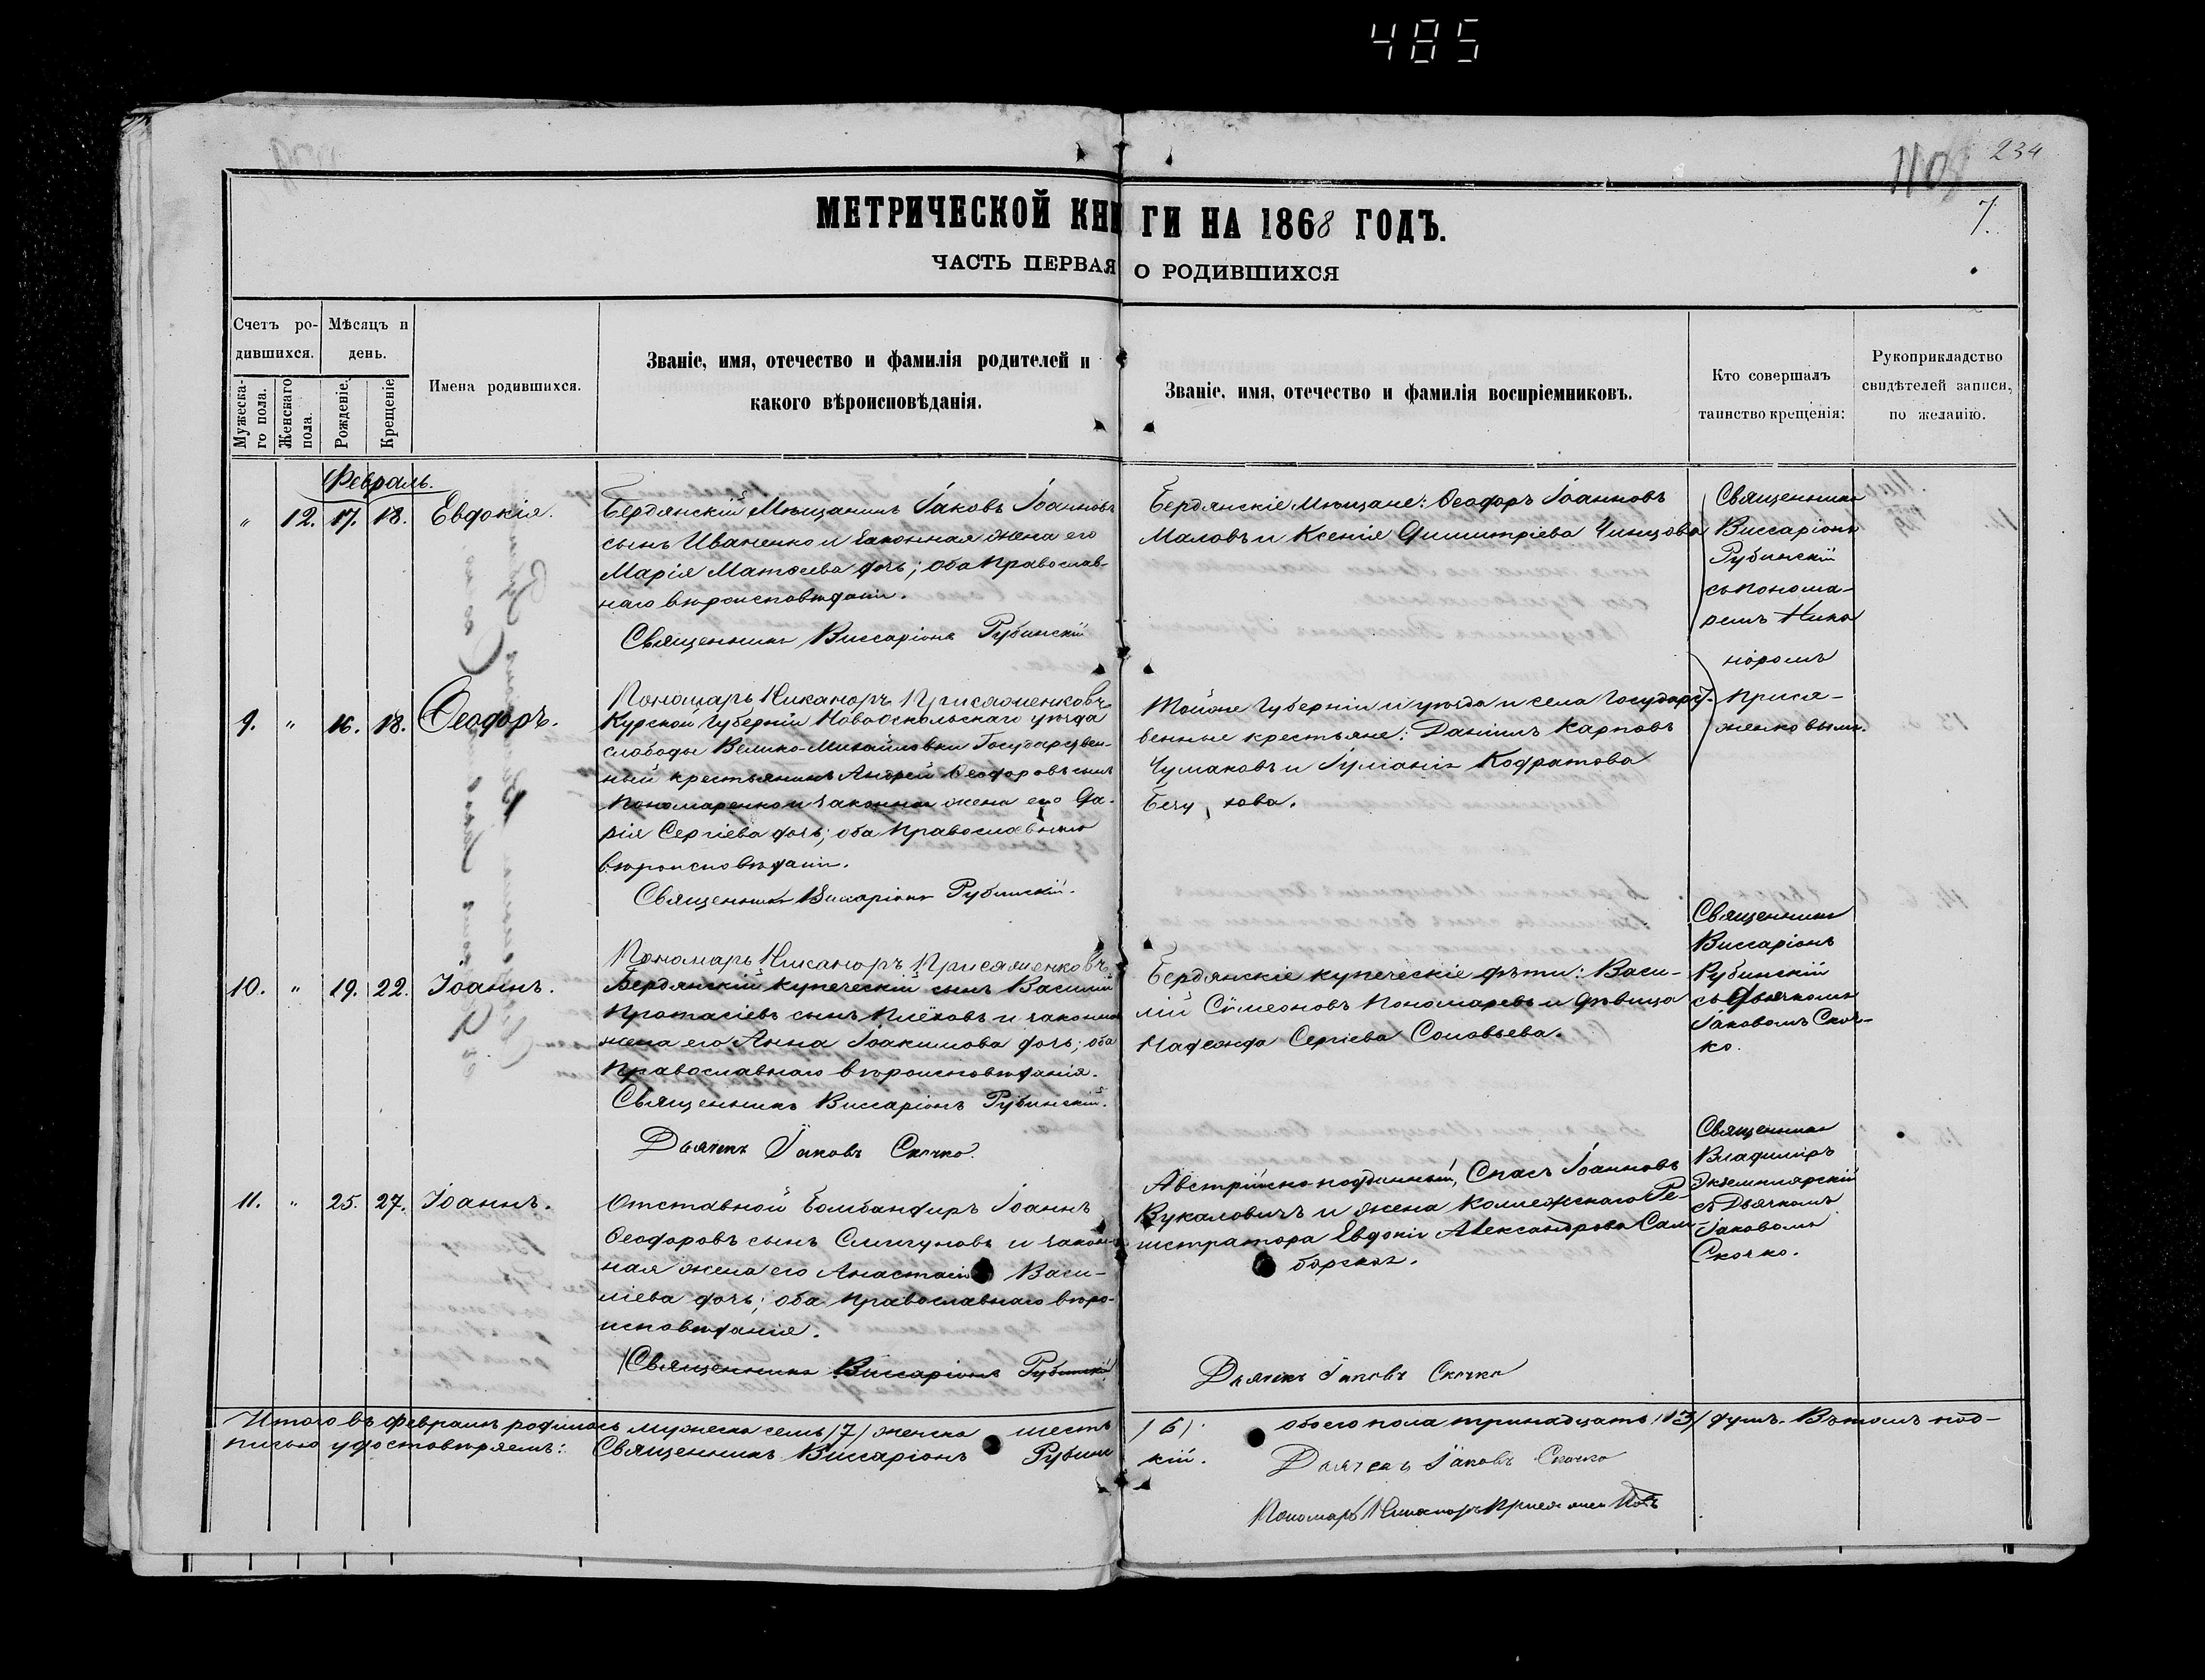 485
234
7.
МЕТРИЧЕСКОЙ КНИГИ НА 1868 ГОДЪ.
ЧАСТЬ ПЕРВАЯ О РОДИВШИХСЯ
Счетъ ро-
дившихся.
Мужеска-
го пола.
Женскаго
пола.
Мѣсяцъ и
день.
Рожденіе.
Крещеніе
Имена родившихся.
Званіе, имя, отечество и фамилія родителей и
какого вѣроисповѣданія.
Званіе, имя, отечество и фамилія воспріемниковъ.
Кто совершалъ
таинство крещенія:
Рукоприкладство
свидѣтелей записи,
по желанію.
Февраль.
" 12. 17. 18. Евдокія.
Бердянскій Мѣщанинъ Іаковъ Іоанновъ
сынъ Иваненко и законная жена его
Марія Матѳеева дочь; оба Православ-
наго вѣроисповѣданія.
Священникъ Виссаріонъ Рубинскій
Бердянскіе Мѣщане: Ѳеодоръ Іоанновъ
Маловъ и Ксенія Димитріева
Священникъ
Виссаріонъ
Рубинскій
съ Понома-
ремъ Ника
норомъ
Прися-
женковымъ.
Пономарь Никаноръ Присяженковъ
9. " 16. 18. Ѳеодоръ.
Курской Губерніи Новооскольскаго уѣзда
слободы Велико-Михайловки Государствен-
ный крестьянинъ Андрей Ѳеодоровъ сынъ
Пономаренко и законная жена его Да-
рія Сергіева дочь; оба Православнаго
вѣроисповѣданія.
Священникъ Виссаріонъ Рубинскій.
Тойже Губерніи и уѣзда и села Государст-
венные крестьяне: Даніилъ Карповъ
Чумаковъ и Іуліанія Кодратова
Пономарь Никаноръ Присяженковъ
10. " 19. 22. Іоаннъ.
Бердянскій купеческій сынъ Василій
Протасіевъ сынъ и законная
жена его Анна Іоакимова дочь; оба
Православнаго вѣроисповѣданія.
Священникъ Виссаріонъ Рубинскій.
Дьячекъ Іаковъ Скочко.
Бердянскіе купеческіе дѣти: Васи-
лій Сѵмеоновъ Пономаревъ и дѣвица
Надежда Сергіева Соловьева.
Священникъ
Виссаріонъ
Рубинскій
съ Дьячкомъ
Іаковомъ Скоч-
ко.
11. " 25. 27. Іоаннъ.
Отставной Бомбандиръ Іоаннъ
Ѳеодоровъ сынъ Смигуновъ и закон-
ная жена его Анастасія Васи-
ліева дочь; оба Православнаго вѣро-
исповѣданія.
Священникъ Виссаріонъ Рубинскій
Австрійско-подданный, Спасъ Іоанновъ
Вукаловичъ и жена Коллежскаго Ре-
гистратора Евдокія Александрова Сам-
борская.
Дьячекъ Іаковъ Скочко
Священникъ
Владиміръ
Экземплярскій
съ Дьячкомъ
Іаковомъ
Скочко.
Итого въ Февралѣ родилось мужеска семь /7/ женска шесть /6/. обоего пола тринадцать /13/ душъ. Въ томъ под-
писью удостовѣряемъ: Священникъ Виссаріонъ Рубинскій.
Дьячекъ Іаковъ Скочко
Пономарь Никаноръ